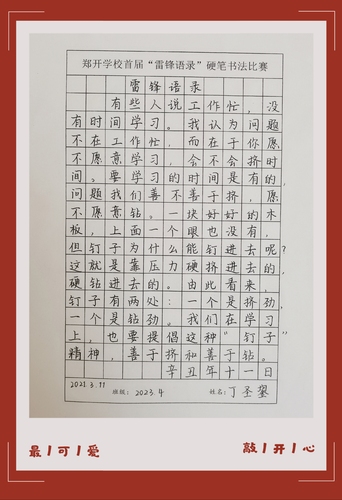 郑开学校首届“雷锋语录”硬笔书法比赛
雷锋语录
有些人说工作忙，没
有时间学习。我认为问题
不在工作忙，而在于你愿
不愿意学习，会不会挤时
间。要学习的时间是有的，
问题我们善不善于挤，愿
不愿意钻。一块好好的木
板，上面一个眼也没有，
但钉子为什么能钉进去呢？
这就是靠压力硬挤进去的，
硬钻进去的。由此看来，
钉子有两处：一个是挤劲，
一个是钻劲。我们在学习
上，也要提倡这种“钉子”
精神，善于挤和善于钻。
辛丑年十一日
2021.3.11
班级：2023.4 姓名：丁圣
最 可 爱
敲 开 心